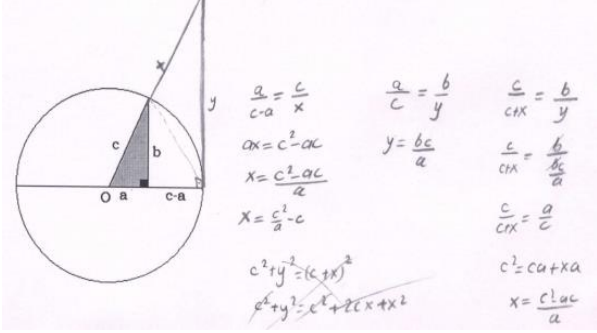 x
y
c
b
O a
c-a
a/(c-a) = c/x
ax = c²-ac
x = (c²-ac)/a
x = c²/a - c
c²+y² = (c+x)²
c²+y² = c²+2cx+x²
a/c = b/y
y = bc/a
c/(c+x) = b/y
c/(c+x) = b/(bc/a)
c/(c+x) = a/c
c² = ca+xa
x = (c²-ac)/a